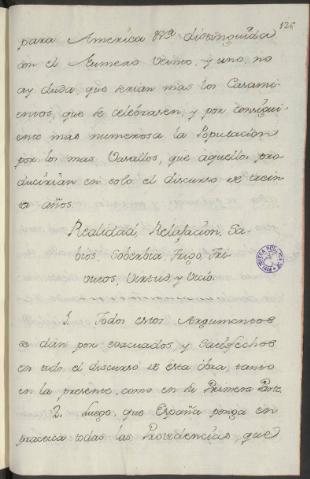 126
para America &&ª distinguida
en el Numero veinte, y uno, no
ay duda, que serian mas los Casami-
entos, que se celebrasen, y por consigui-
ente mas numerosa la Populacion
por los mas Vasallos, que aquellos pro-
ducirian en solo el discurso de trein-
ta años.
Realidad, Relajacion, Sa-
bios, Soberbia, Trigo, Tri-
nicos, Virtud, y Vicio.
1. Todos estos Argumentos
se dán por evacuados, y satisfechos
en todo el discurso de esta obra, tanto
en la presente, como en su Primera Parte.
2. Luego, que España ponga en
practica todas las Providencias, que